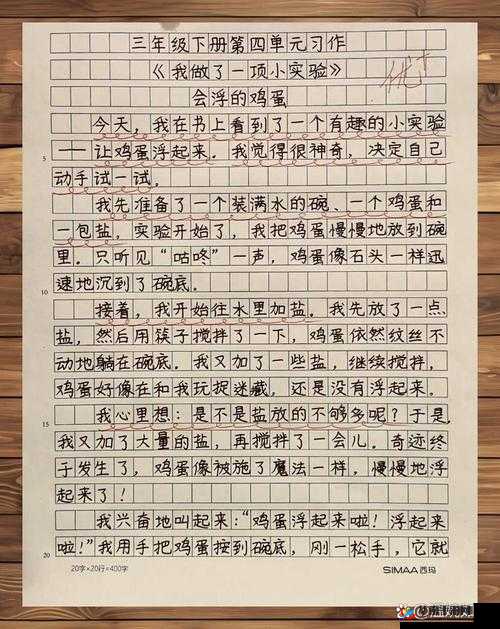 三年级下册第四单元习作
《我做了一项小实验》
优+
会浮的鸡蛋
今天，我在书上看到了一个有趣的小实验
5
——让鸡蛋浮起来。我觉得很神奇，决定自己
动手试一试。
我先准备了一个装满水的碗、一个鸡蛋和
一包盐，实验开始了，我把鸡蛋慢慢地放到碗
里。只听见“咕咚”一声，鸡蛋像石头一样迅
10
速地沉到了碗底。
接着，我开始往水里加盐。我先放了一点
盐，然后用筷子搅拌了一下，鸡蛋依然纹丝不
动地躺在碗底。我又加了一些盐，继续搅拌，
鸡蛋好像在和我玩捉迷藏，还是没有浮起来。
15
我心里想：是不是盐放的不够多呢？于是，
我又加了大量的盐，再搅拌了一会儿。奇迹终
于发生了，鸡蛋像被施了魔法一样，慢慢地浮
起来了！
我兴奋地叫起来：“鸡蛋浮起来啦！浮起来
20
啦！”我用手把鸡蛋按到碗底，刚一松手，它就
20字×20行=400字
SIMAA西玛